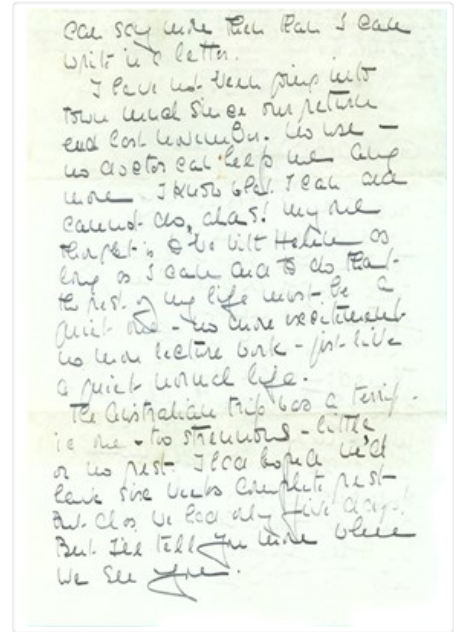 can say more then than I can
write in a letter.
I have not been going into
town much since our return
end last november. no use –
no doctor can help me any
more. I know what I can and
cannot do, alas! my one
thought is to be with Helen as
long as I can and to do that
the rest of my life must be a
quiet one – no more excitement
no more lecture work – just live
a quiet normal life.
The Australian trip was a terrif-
ic one – too strenuous – little
or no rest. I had hoped we'd
have six weeks complete rest
But alas, we had only five days.
But I'll tell you more when
we see you.